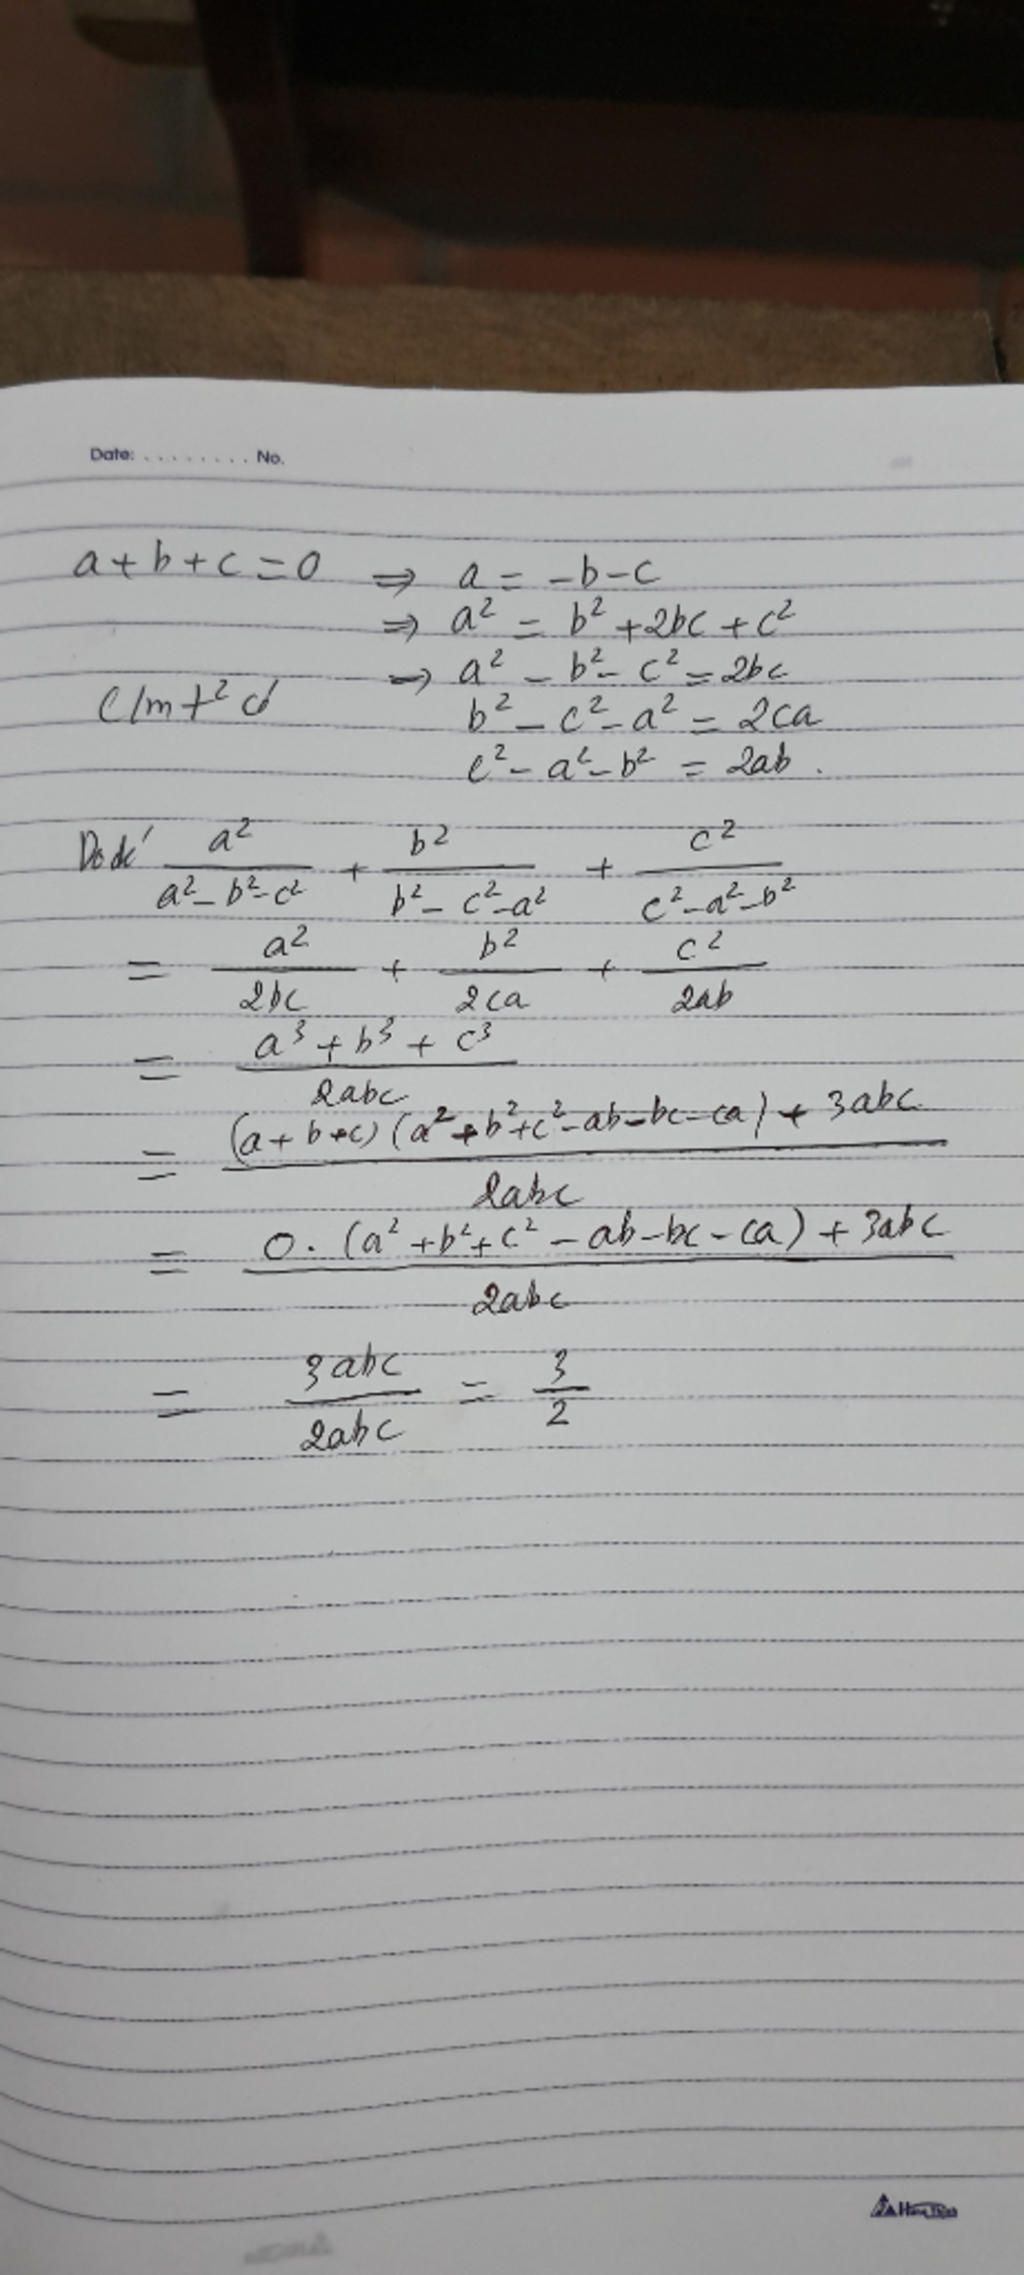 Date: ........ No.
a + b + c = 0 ⇒ a = -b - c
⇒ a² = b² + 2bc + c²
⇒ a² - b² - c² = 2bc
c/m t² có b² - c² - a² = 2ca
c² - a² - b² = 2ab.
Do đó a²/(a² - b² - c²) + b²/(b² - c² - a²) + c²/(c² - a² - b²)
= a²/2bc + b²/2ca + c²/2ab
= (a³ + b³ + c³)/2abc
= ((a + b + c)(a² + b² + c² - ab - bc - ca) + 3abc)/2abc
= (0.(a² + b² + c² - ab - bc - ca) + 3abc)/2abc
= 3abc/2abc = 3/2